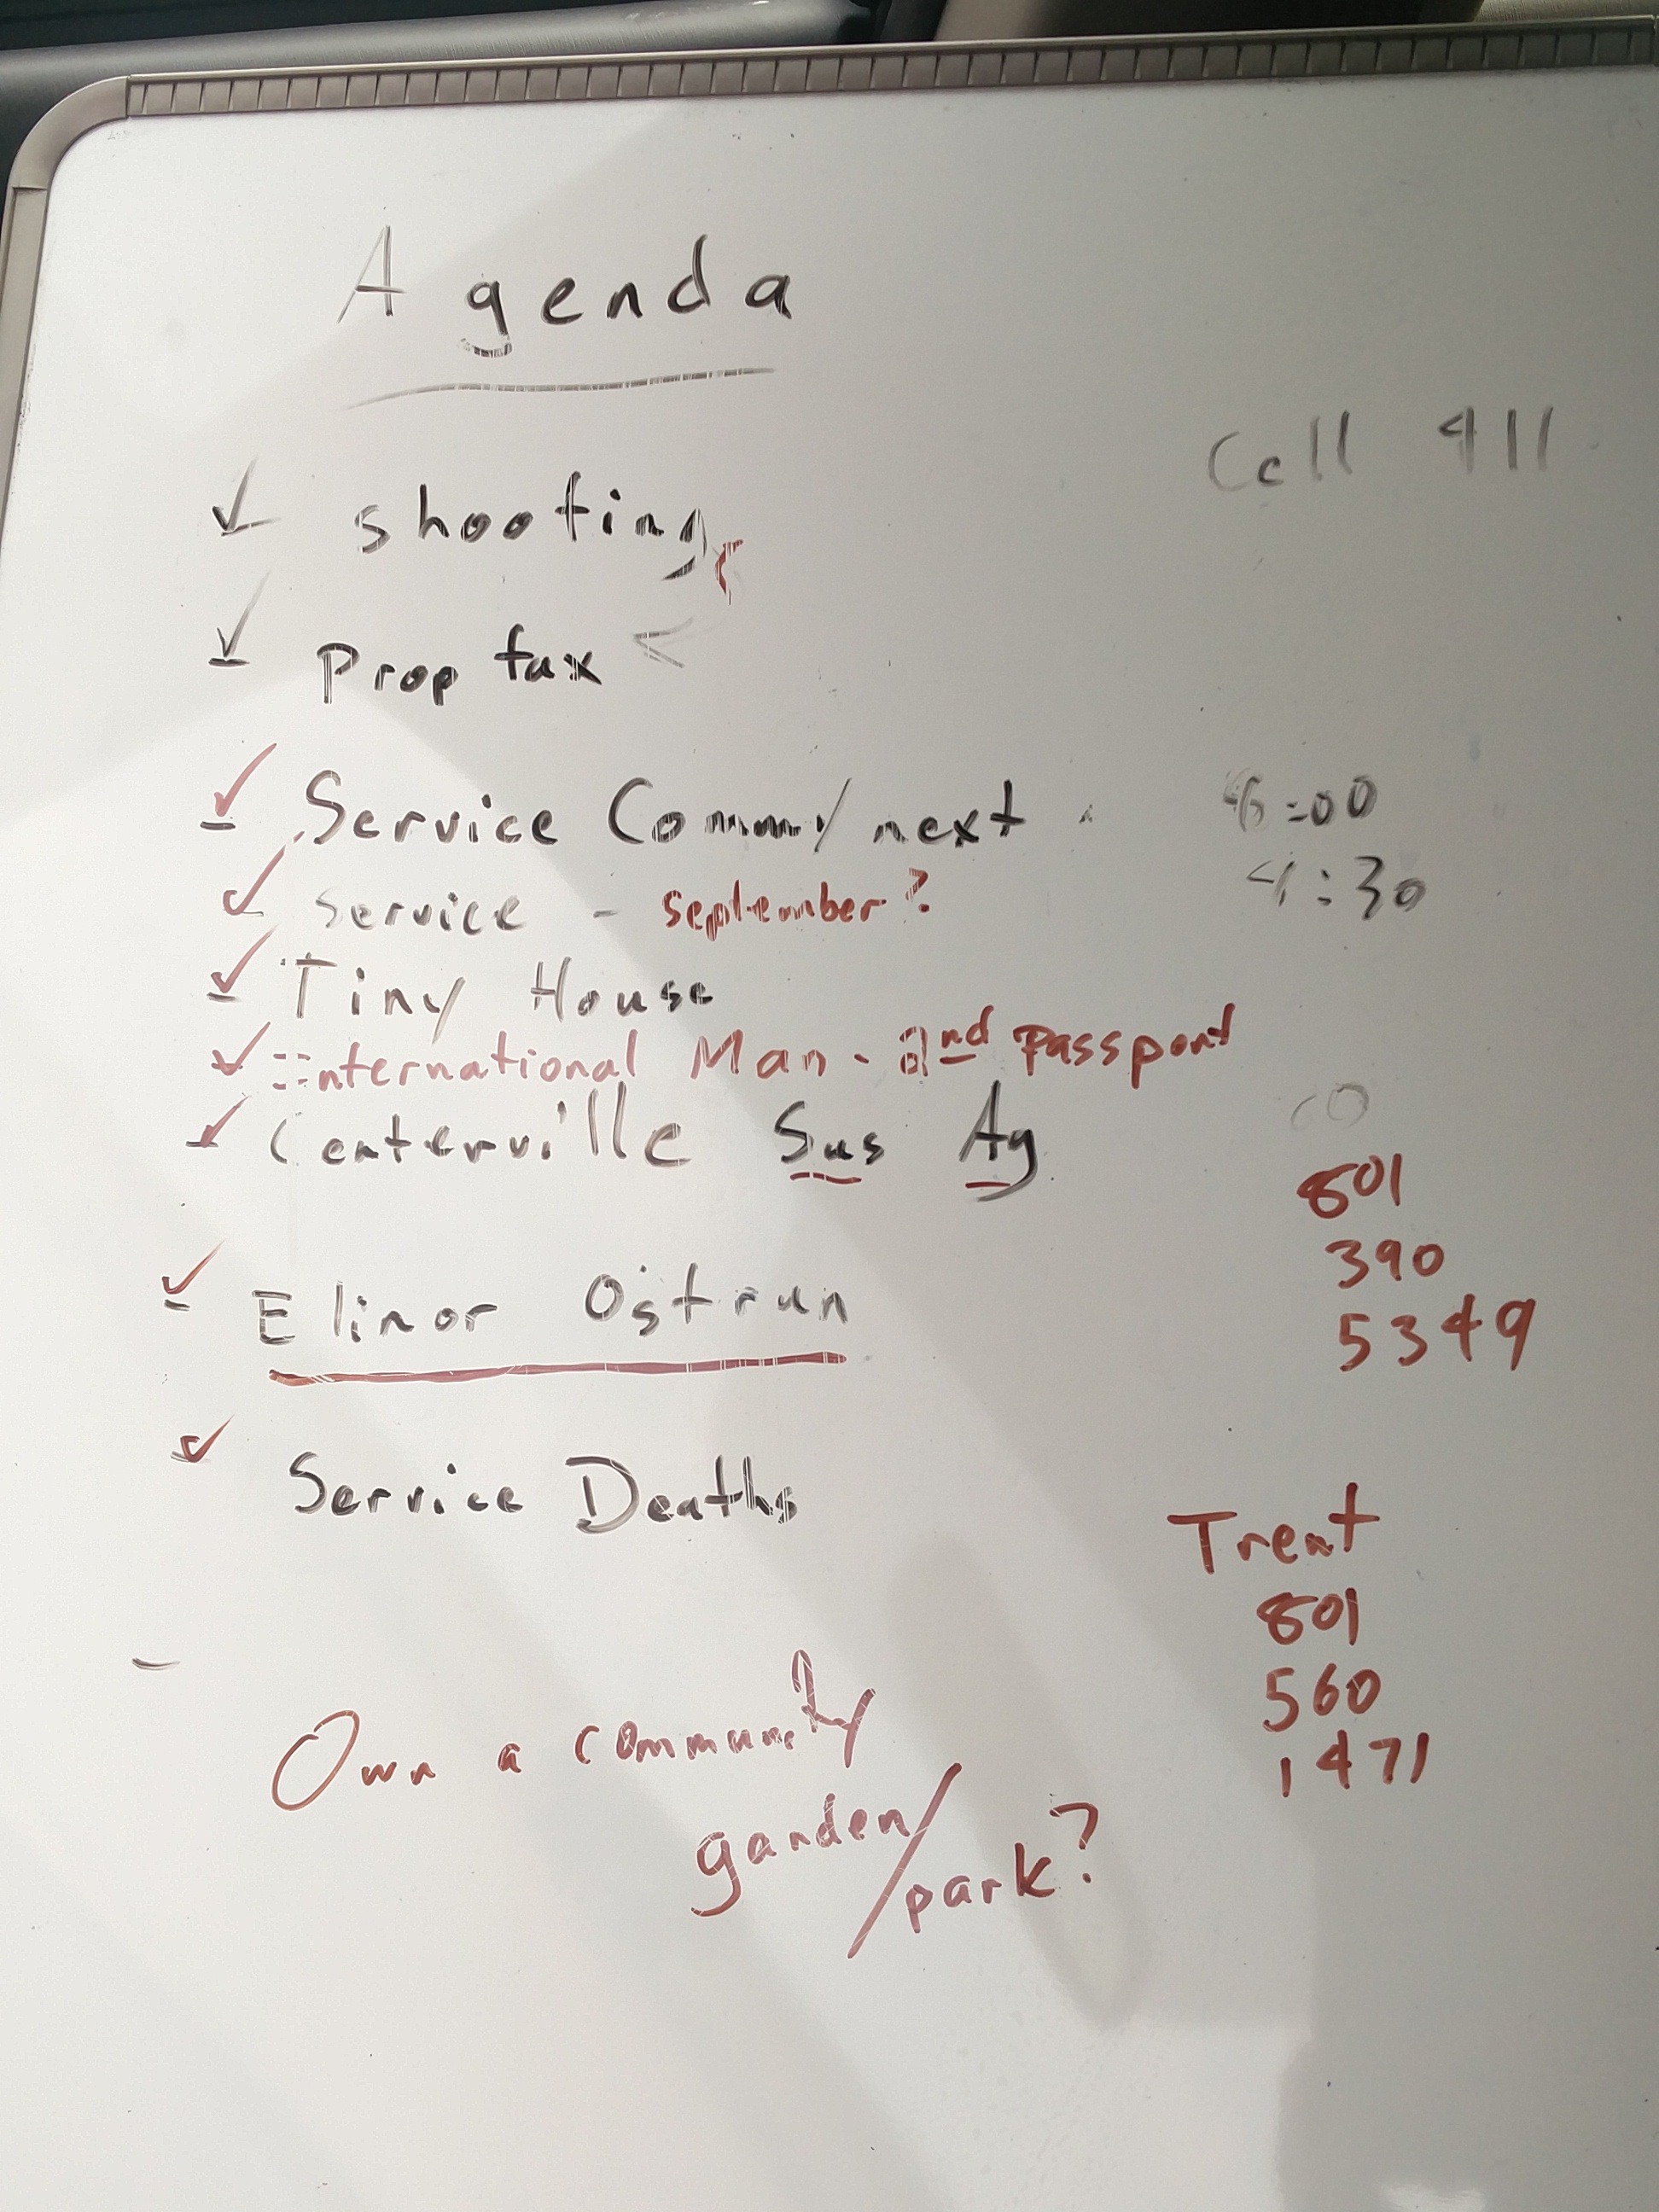 Agenda
Cell 411
✓ shooting
✓ Prop tax <
✓ Service Comm/next
6:00
✓ service - september?
4:30
✓ Tiny House
✓ International Man - 2nd Passport
✓ Centerville Sus Ag
801
390
5349
✓ Elinor Ostrun
✓ Service Deaths
Trent
801
560
1471
- Own a community
garden/
park?